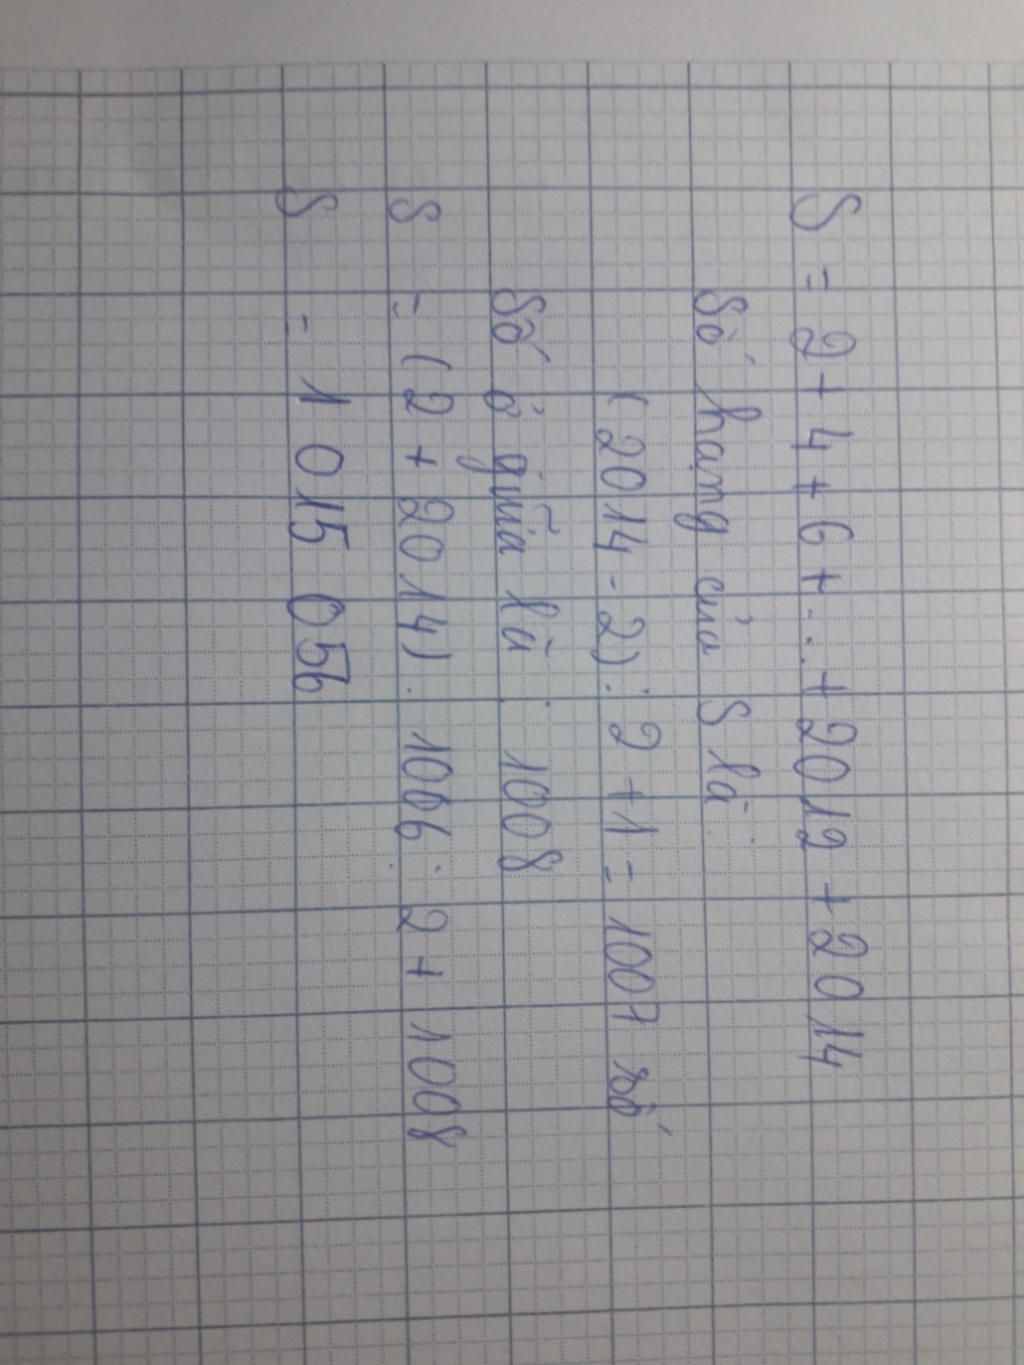 S = 2 + 4 + 6 + ... + 2012 + 2014
Số hạng của S là :
(2014 - 2) : 2 + 1 = 1007 số
Số ở giữa là : 1008
S = (2 + 2014) . 1006 : 2 + 1008
S = 1 015 056